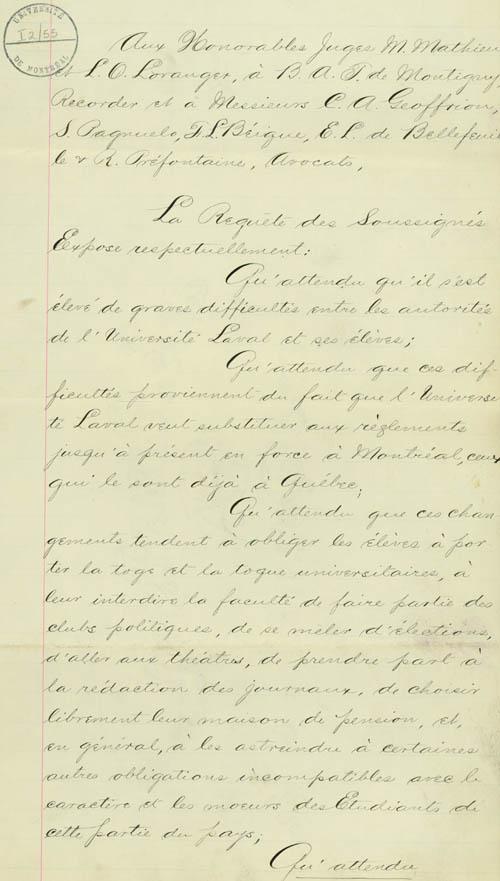 UNIVERSITÉ
I2/55
DE MONTRÉAL
Aux Honorables Juges M. Mathieu
et L. O. Loranger, à B. A. T. de Montigny,
Recorder et à Messieurs C. A. Geoffrion,
S. Pagnuelo, F. L. Béique, E. L. de Bellefeuil
le & R. Préfontaine, Avocats,
La Requête des Soussignés
Expose respectuellement:
Qu'attendu qu'il s'est
élevé de graves difficultés entre les autorités
de l'Université Laval et ses élèves;
Qu'attendu que ces dif-
ficultés proviennent du fait que l'Universi
té Laval veut substituer aux règlements
jusqu'à présent en force à Montréal, ceux
qui le sont déjà à Québec;
Qu'attendu que ces chan-
gements tendent à obliger les élèves à por
ter la toge et la toque universitaires, à
leur interdire la faculté de faire partie des
clubs politiques, de se mêler d'élections,
d'aller aux théâtres, de prendre part à
la rédaction des journaux, de choisir
librement leur maison de pension, et,
en général, à les astreindre à certaines
autres obligations incompatibles avec le
caractère et les moeurs des Etudiants de
cette partie du pays;
Qu'attendu